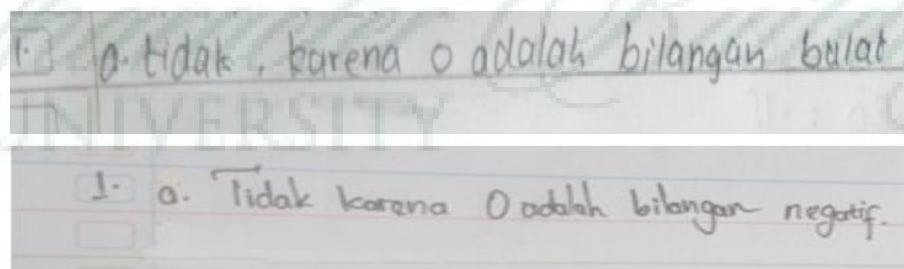 1. a. tidak, karena 0 adalah bilangan bulat
UNIVERSITY
1. a. Tidak karena 0 adalah bilangan negatif.